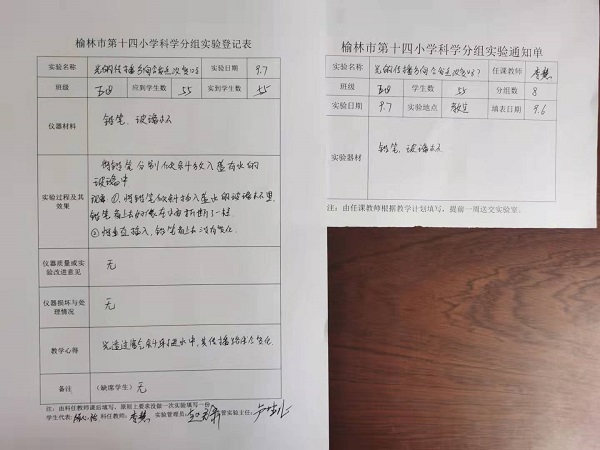 榆林市第十四小学科学分组实验登记表
实验名称 光的传播方向会发生改变吗? 实验日期 9.7
班级 应到学生数 55 实到学生数 55
仪器材料 铅笔、玻璃杯
将铅笔分别倾斜放入盛有水的
玻璃杯中
实验过程及其
效果
现象:①、将铅笔倾斜插入盛水的玻璃杯里
铅笔看上去好像在水面折断了一样
②将垂直插入,铅笔看上去没有变化.
仪器质量或实
验改进意见
无
仪器损坏与处
理情况
无
教学心得
备注 (缺席学生) 无
注:由科任教师课后填写,原则上要求每做一次实验填写一份
学生代表: 科任教师: 实验管理员: 管实验主任:
榆林市第十四小学科学分组实验通知单
实验名称 光的传播方向会发生改变吗? 任课教师
班级 学生数 55 分组数 8
实验日期 9.7 实验地点 教室 填表日期 9.6
实验器材 铅笔、玻璃杯
注:由任课教师根据教学计划填写,提前一周送交实验室。